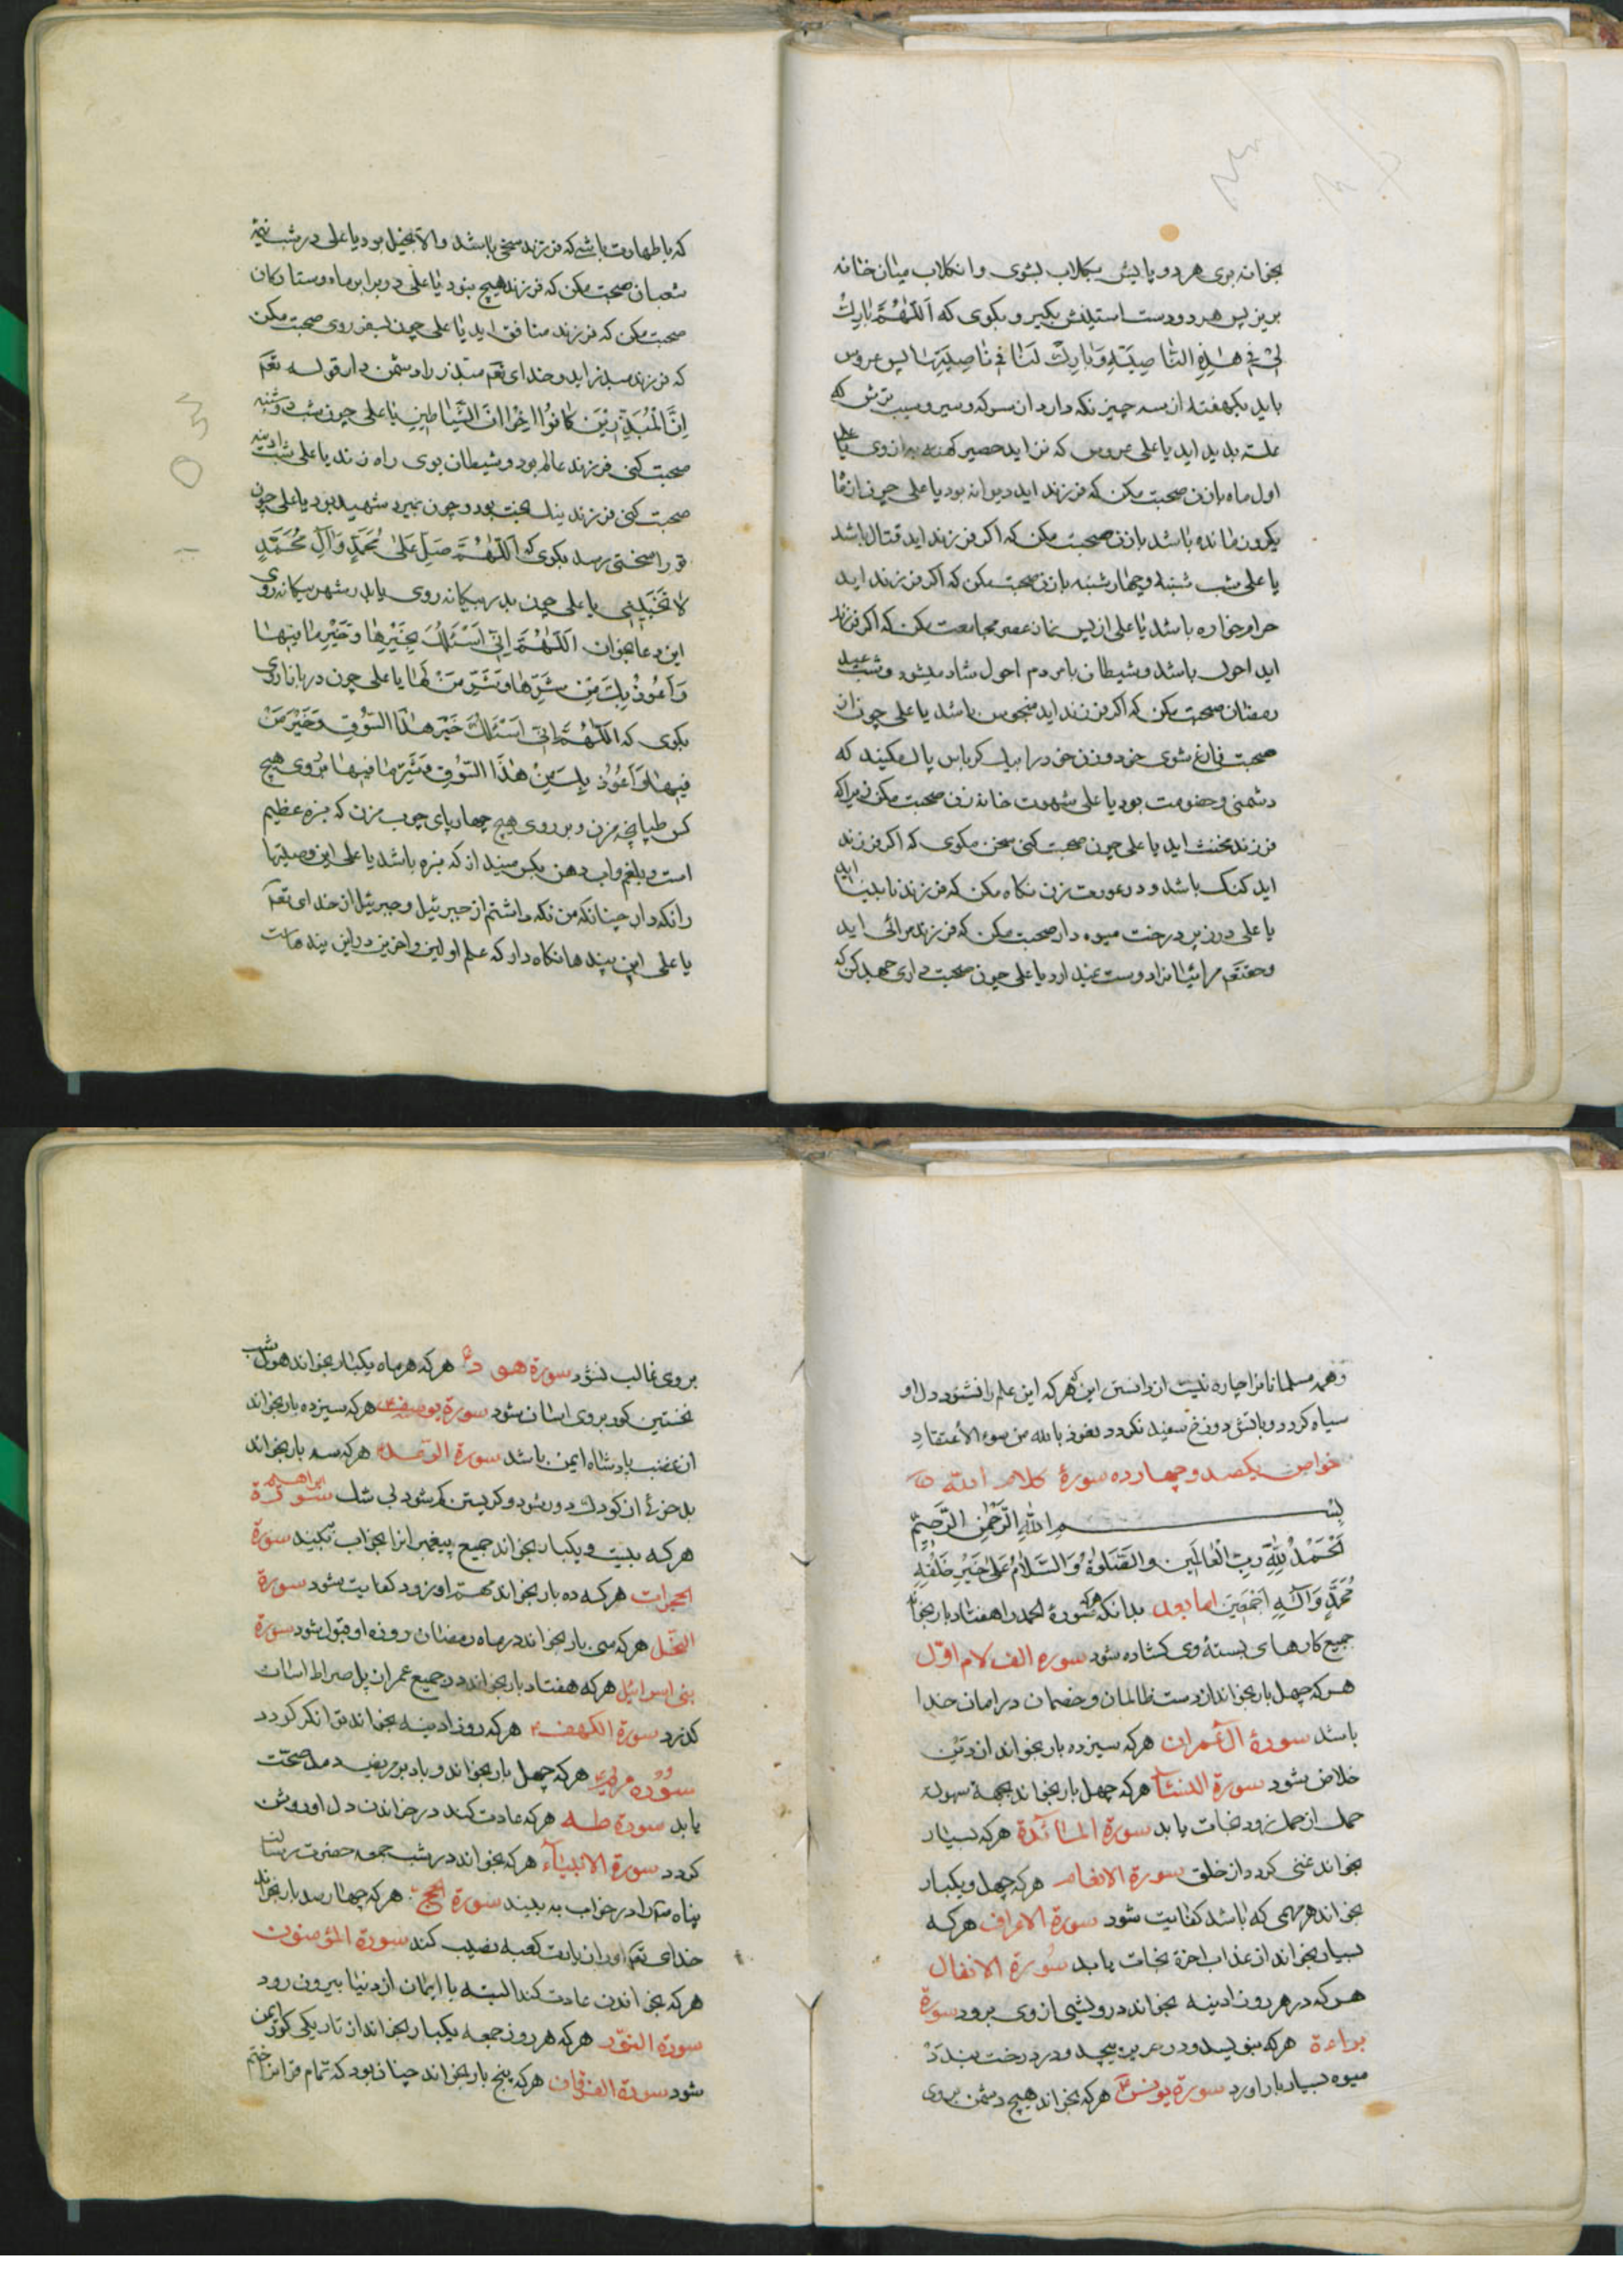 بخوانه بری هر دو پایش بکلاب بشوی وانکلاب میان خانه
بریز پس هر دو دست استینش بکیر و بکوی که اَللّٰهُمَّ بَارِكْ
لِیْ فِی هٰذِهِ النَّاصِیَةِ وَبَارِكْ لَنَا فِی نَاصِیَتِهَا پس عروس
باید یکهفته از سه چیز نکه دارد از سرکه و سیر و سیب ترش که
علت بدید اید یا علی عروس که نزاید حصیر کهنه به از وی یا علی
اول ماه بازن صحبت مکن که فرزند اید دیوانه بود یا علی چون از ماه
یکروز مانده باشد بازن صحبت مکن که اکر فرزند اید قتال باشد
یا علی شب شنبه و چهارشنبه بازن صحبت مکن که اکر فرزند اید
حرامخواره باشد یا علی از پس نماز عصر مجامعت مکن که اکر فرزند
اید احول باشد و شیطان بامردم احول شاد میشود و شب عید
رمضان صحبت مکن که اکر فرزند اید منحوس باشد یا علی چون از
صحبت فارغ شوی خود و زن خود را بیك کرباس پاك مکنید که
دشمنی و خصومت بود یا علی شهوت خانه زن صحبت مکن زیراکه
فرزند مخنث اید یا علی چون صحبت کنی سخن مکوی که اکر فرزند
اید کنک باشد و در عورت زن نکاه مکن که فرزند نابینا اید
یا علی در زیر درخت میوه دار صحبت مکن که فرزند مرائی اید
وحقتعم مرائیانرا دوست نمیدارد یا علی چون صحبت داری جهد کن که
که باطهارت باشی که فرزند سخی باشد والا بخیل بود یا علی در شب نیمه
شعبان صحبت مکن که فرزند هیچ نبود یا علی در برابر ماه و ستارکان
صحبت مکن که فرزند منافق اید یا علی چون بسفر روی صحبت مکن
که فرزند مبذر اید و خدای تعم مبذر را دشمن دار قوله تعم
اِنَّ الْمُبَذِّرِیْنَ کَانُوْا اِخْوَانَ الشَّیَاطِیْنِ یا علی چون شب دوشنبه
صحبت کنی فرزند عالم بود و شیطان بوی راه نزند یا علی شب ادینه
صحبت کنی فرزند نیك بخت بود و چون بمیرد شهید بود یا علی چون
تو را سختی رسد بکوی که اَللّٰهُمَّ صَلِّ عَلٰی مُحَمَّدٍ وَآلِ مُحَمَّدٍ
یا علی چون بدر بیکانه روی یا بدر شهر بیکانه روی
این دعا بخوان اَللّٰهُمَّ اِنِّی اَسْئَلُكَ بِخَیْرِهَا وَخَیْرِ مَا فِیْهَا
وَاَعُوْذُ بِكَ مِنْ شَرِّهَا وَشَرِّ مَنْ لَهَا یا علی چون در بازار روی
بکوی که اَللّٰهُمَّ اِنِّی اَسْئَلُكَ خَیْرَ هٰذَا السُّوْقِ وَخَیْرَ مَنْ
فِیْهَا وَاَعُوْذُ بِكَ مِنْ هٰذَا السُّوْقِ وَشَرِّ مَا فِیْهَا بروی هیچ
کس طپانچه مزن و بر روی هیچ چهارپای چوب مزن که بزه عظیم
است و بلغم و اب دهن بکس مینداز که بزه باشد یا علی این وصیتها
را نکه دار چنانکه من نکه داشتم از جبرئیل و جبرئیل از خدای تعم
یا علی این پندها نکاه دار که علم اولین و اخرین در این پندهاست
وهمه مسلمانانرا چاره نیست از دانستن این هر که این علم را نشنود دل او
سیاه کردد و باتش دوزخ سفید نکردد نعوذ بالله من سوء الاعتقاد
خواص یکصد و چهارده سورۀ کلام الله
بِسْمِ اللّٰهِ الرَّحْمٰنِ الرَّحِیْمِ
اَلْحَمْدُ لِلّٰهِ رَبِّ الْعَالَمِیْنَ وَالصَّلٰوةُ وَالسَّلَامُ عَلٰی خَیْرِ خَلْقِهِ
مُحَمَّدٍ وَآلِهِ اَجْمَعِیْنَ اما بعد بدانکه هرکه سورۀ الحمد را هفتاد بار بخواند
جمیع کارهای بستۀ وی کشاده شود سوره الف لام اوّل
هرکه چهل بار بخواند از دست ظالمان و خصمان در امان خدا
باشد سورۀ آل عمران هرکه سیزده بار بخواند از دَیْن
خلاص شود سورة النسآء هرکه چهل بار بخواند بجهة سهولة
حمل از حمل زود نجات یابد سورة المائدة هرکه بسیار
بخواند غنی کردد از خلق سورة الانعام هرکه چهل و یکبار
بخواند هر مهمی که باشد کفایت شود سورة الاعراف هرکه
بسیار بخواند از عذاب اخرة نجات یابد سورة الانفال
هرکه در هر روز ادینه بخواند درویشی از وی برود سورة
براءة هرکه بنویسد و در حریر پیچد و در درخت بندد
میوه بسیار بار اورد سورة یونس هرکه بخواند هیچ دشمن بروی
بروی غالب نشود سورة هود هرکه هر ماه یکبار بخواند هول شب
نخستین کور بروی اسان شود سورة یوسف هرکه سیزده بار بخواند
از غضب پادشاه ایمن باشد سورة الرعد هرکه سه بار بخواند
بدخوئ از کودك دور شود و کریستن کم شود بی شك سورة ابراهیم
هرکه بیست و یکبار بخواند جمیع پیغمبرانرا بخواب بیند سورة
الحجرات هرکه ده بار بخواند مهم او زود کفایت شود سورة
النحل هرکه سی بار بخواند در ماه رمضان روزه او قبول شود سورة
بنی اسرائیل هرکه هفتاد بار بخواند در جمیع عمر از پل صراط اسان
کذرد سورة الکهف هرکه روز ادینه بخواند توانکر کردد
سوره مریم هرکه چهل بار بخواند و باد بر مریض دمد صحّت
یابد سورة طه هرکه عادت کند در خواندن دل او روشن
کردد سورة الانبیاء هرکه بخواند در شب جمعه حضرت رسالت
پناه را در خواب به بیند سورة الحج هرکه چهار صد بار بخواند
خدای تعم او را زیارت کعبه نصیب کند سورة المؤمنون
هرکه بخواندن عادت کند البته با ایمان از دنیا بیرون رود
سورة النور هرکه هر روز جمعه یکبار بخواند از تاریکی کور ایمن
شود سورة الفرقان هرکه پنج بار بخواند چنان بود که تمام قران ختم